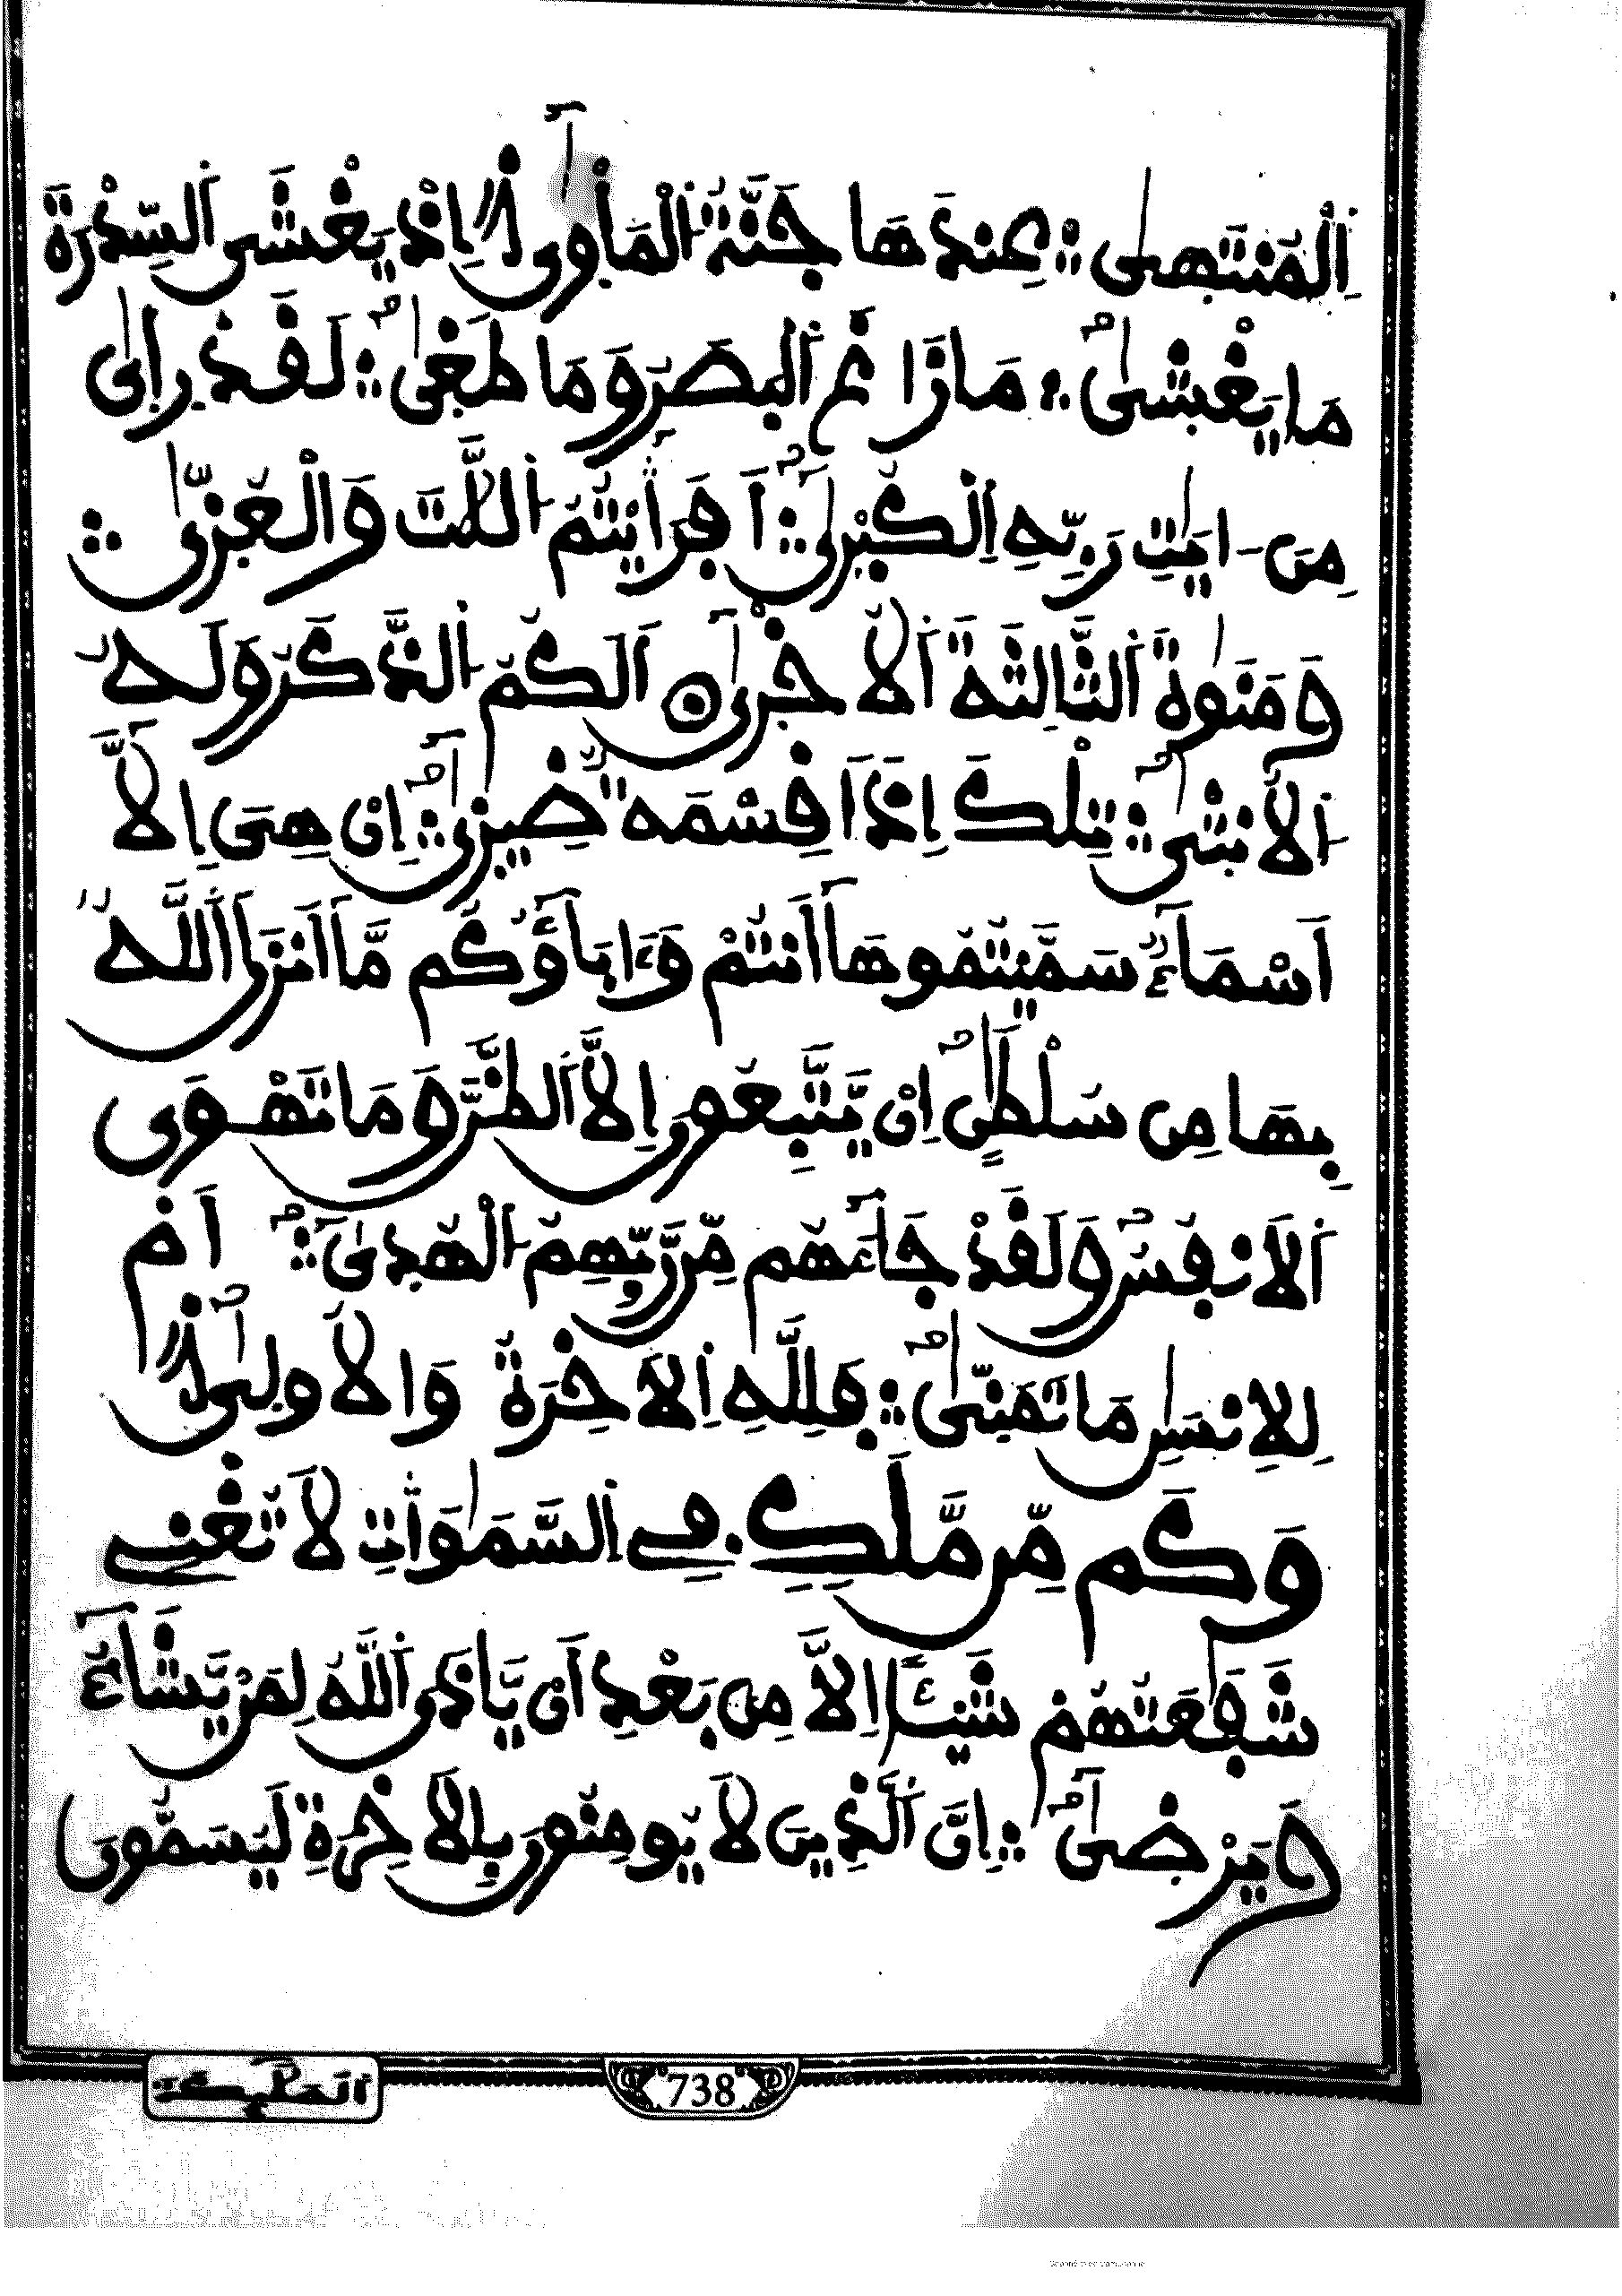 اِ۬لْمُنتَه۪ىٰ ۞ عِندَهَا جَنَّةُ اُ۬لْمَأْو۪ىٰٓ ۞ إِذْ يَغْشَى اَ۬لسِّدْرَةَ
مَا يَغْش۪ىٰ ۞ مَا زَاغَ اَ۬لْبَصَرُ وَمَا طَغ۪ىٰ ۞ لَقَدْ ر۪أ۪ىٰ
مِنَ اٰيَٰتِ رَبِّهِ اِ۬لْكُبْر۪ىٰٓ ۞ أَفَرَٰٓيْتُمُ اُ۬للَّٰتَ وَالْعُزّ۪ىٰ ۞
وَمَنَوٰةَ اَ۬لثَّالِثَةَ اَ۬لُاخْر۪ىٰٓ ۞ أَلَكُمُ اُ۬لذَّكَرُ وَلَهُ
اُ۬لُانث۪ىٰ ۞ تِلْكَ إِذاً قِسْمَةٌ ضِيز۪ىٰٓ ۞ إِنْ هِيَ إِلَّآ
أَسْمَآءٌ سَمَّيْتُمُوهَآ أَنتُمْ وَءَابَآؤُكُم مَّآ أَنزَلَ اَ۬للَّهُ
بِهَا مِن سُلْطَٰنٍ اِنْ يَّتَّبِعُونَ إِلَّا اَ۬لظَّنَّ وَمَا تَهْوَى
اَ۬لَانفُسُ وَلَقَدْ جَآءَهُم مِّن رَّبِّهِمُ اُ۬لْهُد۪ىٰٓ ۞ أَمْ
لِلِانسَٰنِ مَا تَمَنّ۪ىٰ ۞ فَلِلَّهِ اِ۬لَاخِرَةُ وَالُاول۪ىٰ ۞
وَكَم مِّن مَّلَكٍ فِے اِ۬لسَّمَٰوَٰتِ لَا تُغْنِے
شَفَٰعَتُهُمْ شَيْـٔاً اِلَّا مِنۢ بَعْدِ أَنْ يَّاذَنَ اَ۬للَّهُ لِمَنْ يَّشَآءُ
وَيَرْض۪ىٰٓ ۞ إِنَّ اَ۬لذِينَ لَا يُومِنُونَ بِالَاخِرَةِ لَيُسَمُّونَ
738